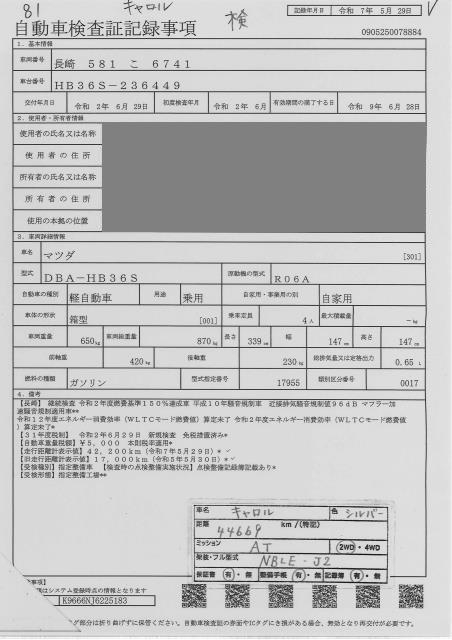 81 キャロル 検
記録年月日 令和 7年 5月 29日
自動車検査証記録事項
0905250078884
1. 基本情報
車両番号 長崎 581 こ 6741
車台番号 HB36S-236449
交付年月日 令和 2年 6月 29日 初度検査年月 令和 2年 6月 有効期間の満了する日 令和 9年 6月 28日
2. 使用者・所有者情報
使用者の氏名又は名称
使用者の住所
所有者の氏名又は名称
所有者の住所
使用の本拠の位置
3. 車両詳細情報
車名 マツダ [301]
型式 DBA-HB36S 原動機の型式 R06A
自動車の種別 軽自動車 用途 乗用 自家用・事業用の別 自家用
車体の形状 箱型 [001] 乗車定員 4人 最大積載量 -kg
車両重量 650kg 車両総重量 870kg 長さ 339cm 幅 147cm 高さ 147cm
前軸重 420kg 後軸重 230kg 総排気量又は定格出力 0.65L
燃料の種類 ガソリン 型式指定番号 17955 類別区分番号 0017
4. 備考
【長崎】 継続検査 令和2年度燃費基準150%達成車 平成10年騒音規制車 近接排気騒音規制値96dB マフラー加
速騒音規制適用車**
令和12年度エネルギー消費効率(WLTCモード燃費値)算定未了 令和2年度エネルギー消費効率(WLTCモード燃費値
)算定未了*
【31年度税制】 令和2年6月29日 新規検査 免税措置済み*
【自動車重量税額】¥5,000 本則税率適用*
【走行距離計表示値】42,200km(令和7年5月29日)*
【旧走行距離計表示値】17,000km(令和5年5月30日)*
【受検種別】指定整備車 【検査時の点検整備実施状況】点検整備記録簿記載あり*
【受検形態】指定整備工場**
車名 キャロル 色 シルバー
距離 44669 km/(特記)
ミッション AT 2WD・4WD
架装・フル型式 NBLE-J2
保証書 有・無 整備手帳 有・無 記録簿 有・無
はシステム登録時点の情報となります
K9666NJ6225183
グ部分は折り曲げずに保管ください。自動車検査証の券面やICタグにき損がある場合、無効となり再交付が必要です。